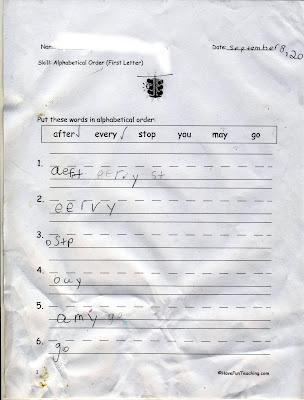 Nam
Date: September 8, 20
Skill: Alphabetical Order (First Letter)
Put these words in alphabetical order:
after every stop you may go
1. aeft eervy st
2. eervy
3. ostp
4. ouy
5. amy go
6. go
©HaveFunTeaching.com